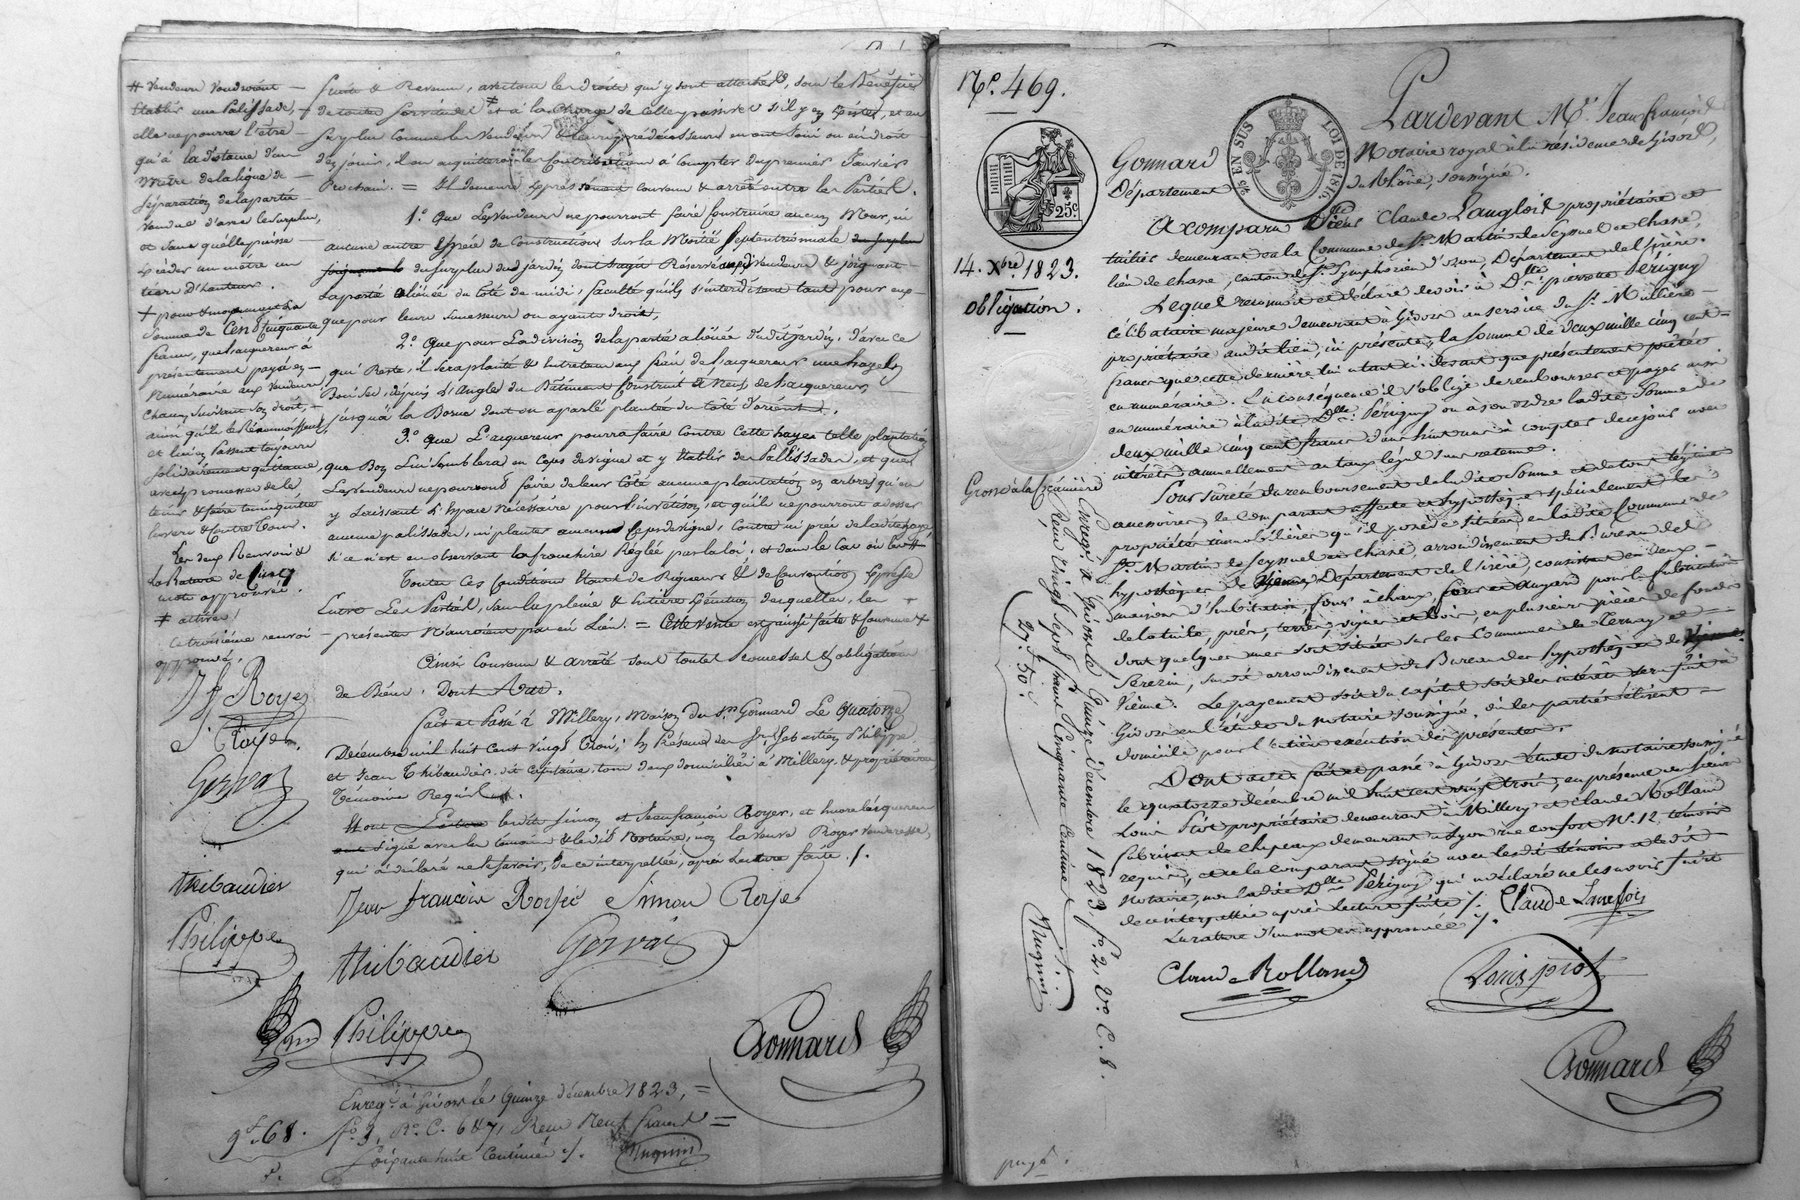 # vendeurs voudroient
établir une Palissade,
elle ne pourra l'être
qu'à la distance d'un
mètre de la ligne de
séparation de la partie
vendue d'avec le surplus,
et sans qu'elle puisse
excéder un mètre un
tiers d'hauteur.
+ pour & moyennant la
somme de Cent Cinquante
francs, que l'acquereur a
présentement payée en
numéraire aux vendeurs
chacun suivant son droit,
ainsi qu'ils le Reconnoissent,
et lui en Passent toujours
solidairement quittance
avec promesse de le
tenir & faire tenir quitte
envers & Contre Tous.
Les deux Renvois &
la Rature de Cinq
mots approuvés.
# attiré
Ce troisième renvoi
approuvé.
J f Royer
S. Royer
Gervais
thibaudier
Philippe
fruits & Revenus, avec tous les droits qui y sont attachés, sous le Bénéfice
de toutes servitudes et à la Charge de celles passives s'il y en existe, et au
surplus comme les vendeurs & leurs prédécesseurs en ont Joui ou eu droit
d'en jouir, il en acquittera les Contributions à Compter du premier Janvier
Prochain. = Il demeure expressément convenu & arrêté entre les Parties.
1.º Que Les vendeurs ne pourront faire Construire aucun Mur, ni
aucune autre Espèce de Constructions sur la Moitié Septentrionale
du surplus dud. jardin Réservé vendeurs & joignant
la partie aliénée du Coté de midi, faculté qu'ils s'interdisent tant pour eux
que pour leurs successeurs ou ayants droits,
2.º Que pour La division de la partie aliénée dudit Jardin, d'avec ce
qui Reste, il sera planté & Entretenu aux frais de l'acquereur une haye
depuis L'Angle du Bâtiment Construit à Neuf de l'acquereur,
jusqu'à la Borne dont on a parlé plantée du côté d'orient.
3.º Que L'acquereur pourra faire Contre Cette haye telle plantation
que Bon Lui semblera en Ceps de vigne et y établir des Pallissades, et que
Les vendeurs ne pourront faire de leur Côté aucune plantation en arbres qu'en
y Laissant L'espace Nécessaire pour et qu'ils ne pourront adosser
aucune palissade, ni planter aucun Ceps de vigne, Contre ni près de ladite haye
si ce n'est en observant la franchise Réglée par la loi, et dans le Cas où les #
Toutes Ces Conditions étant de Rigueur & de Convention Expresse
Entre Les Parties, sans la pleine & Entière exécution desquelles, les
présentes N'auroient pas eu Lieu. = Cette vente est passée faite & Convenue +
Ainsi Convenu & arrêté sous toutes promesses & obligations
de Biens. Dont Acte.
Fait et Passé à Millery, Maison du Sr. Gonnard Le quatorze
Décembre mil huit Cent vingt Trois; En Présence des Srs. Sebastien Philippe,
et Jean Thibaudier dit Capitaine, tous deux domiciliés à Millery, & propriétaires
Témoins Requis.
Et ont lesdits Simon et Jean François Royer, et l'acquereur
signé avec les témoins & ledit Notaire, non la veuve Royer venderesse,
qui a déclaré ne le savoir, de ce interpellée, après Lecture faite./.
Jean françois Royer Simon Royer
thibaudier Gervais
Philippe
Gonnard
Enreg.é à Givors le Quinze décembre 1823, =
fº 3, Rº C. 6 & 7, Reçu Neuf francs =
Soixante huit Centimes ./. Mugnin
9f. 68.
Nº. 469.
25 c.
25 EN SUS LOI DE 1816
14. Xbre. 1823.
Obligation.
Grosse à la Créancière
Enreg.é à Givors le Quinze décembre 1823, fº. 2, Vº. C. 8.
Reçu vingt Sept francs Cinquante Centimes ./. Mugnin
27f. 50.
Pardevant Me. Jean François
Gonnard Notaire royal à la résidence de Givors,
Département du Rhône, soussigné.
A comparu Sieur Claude Langlois propriétaire et
tuilier demeurant en la Commune de St. Martin de Seyssuel et chasse,
lieu de chasse, canton de St. Symphorien d'ozon, Département de l'isère.
Lequel reconnoit et déclare devoir à Dlle. pierrette Périgny
célibataire majeure demeurant à Givors au service du Sr. Mullière
propriétaire audit lieu, ici présente, la somme de deux mille cinq cent
francs que cette dernière lui a tant ci-devant que présentement prêtés
en numéraire. En conséquence il s'oblige de rembourser et payer aussi
en numéraire à ladite Dlle. Périgny ou à son ordre ladite somme de
deux mille cinq cent francs dans huit ans à compter de ce jour avec
intérêts annuellement au taux légal sans retenue.
Pour sûreté du remboursement de ladite somme et de tous légitimes
accessoires, le Comparant affecte et hypothèque spécialement les
propriétés immobilières qu'il possède situées en ladite Commune de
St. Martin de Seyssuel et Chasse, arrondissement du Bureau des
hypothèques de Vienne, Département de l'isère, consistant en deux
maisons d'habitation, four à chaux, four et hangard pour la fabrication
de la tuile, prés, terres, vignes et bois, en plusieurs pièces de fonds
dont quelques unes sont situées sur les Communes de Ternay et
Serezin, susdit arrondissement du Bureau des hypothèques de
Vienne. Le payement soit du capital soit des intérêts sera fait à
Givors en l'étude du notaire soussigné, où les parties élisent
domicile pour l'entière exécution des présentes.
Dont acte fait et passé à Givors étude du notaire soussigné
le quatorze décembre mil huit cent vingt trois, en présence des sieurs
Louis Piot propriétaire demeurant à Millery et Claude Rolland
fabricant de chapeaux demeurant à Lyon rue confort Nº. 12, témoins
requis, et a le comparant signé avec lesdits témoins et ledit
notaire, non ladite Dlle. Périgny qui a déclaré ne le savoir faire
de ce interpellée après lecture faite ./.
La rature d'un mot est approuvée ./.
Claude Langlois
Claude Rolland Louis piot
Gonnard
payé.